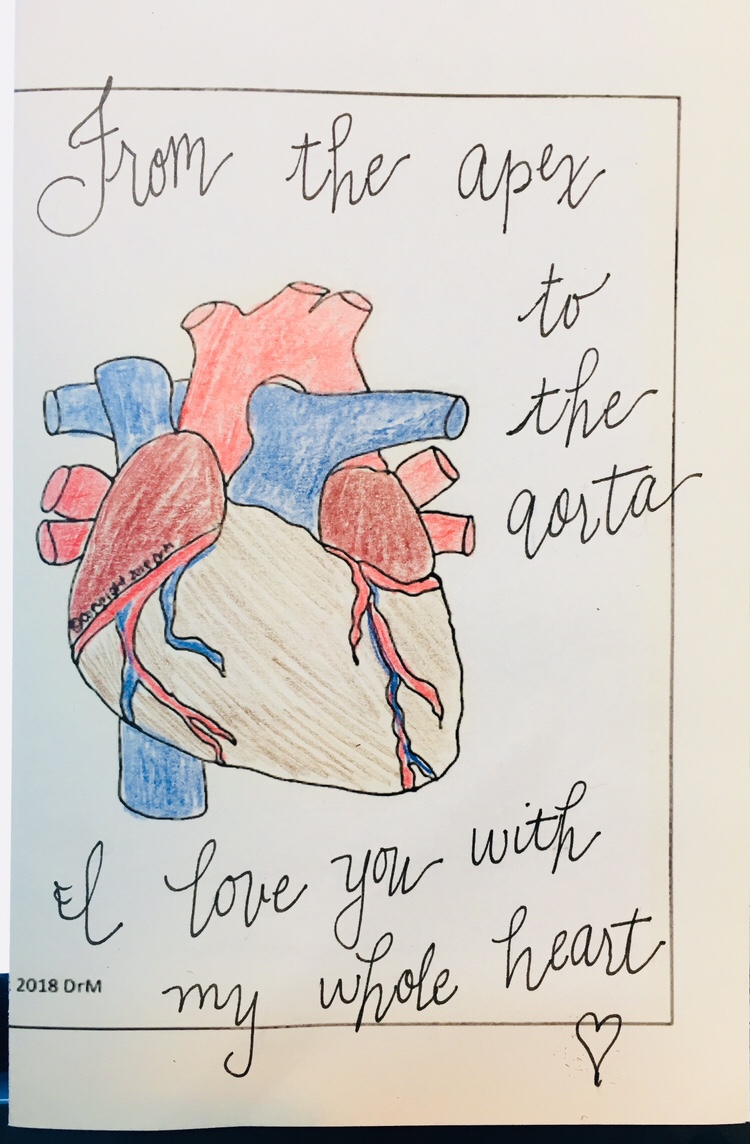 From the apex
to
the
aorta
©Copyright 2018 DrM
I love you with
my whole heart
2018 DrM